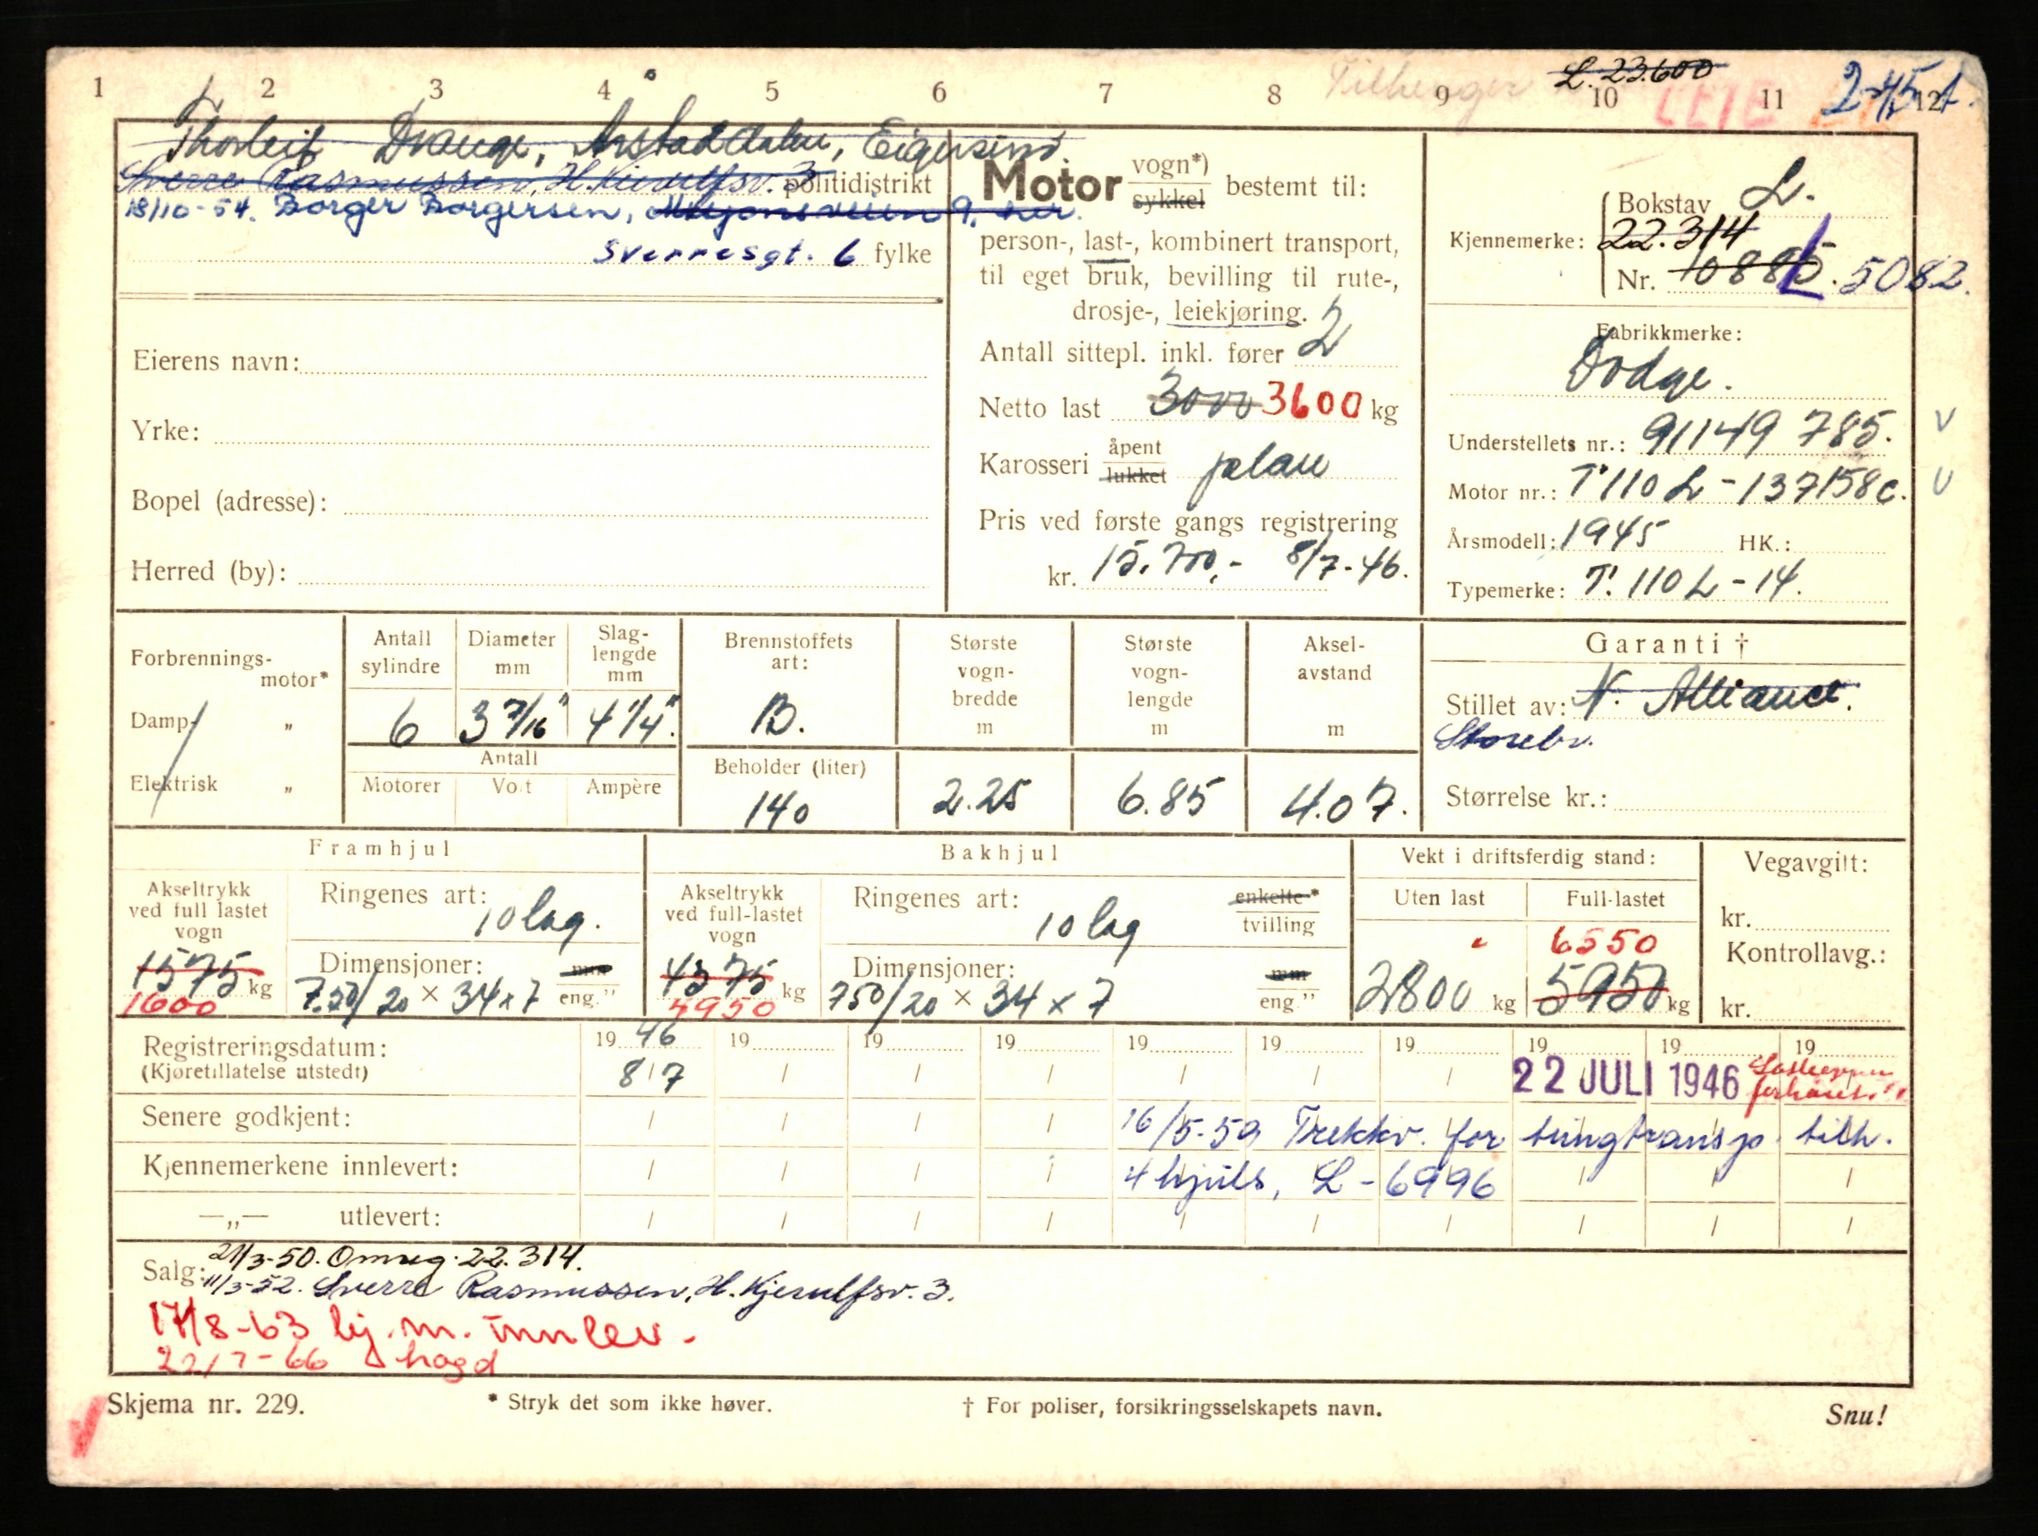 1 2 3 4 5 6 7 8 9 10 11 12
L. 23.600
LEIE
Thorleif Drange, Arstaddalen, Eigersund.
Sverre Rasmussen, H. Kjerulfsv. 3 politidistrikt
18/10-54. Borger Borgersen,
Sverresgt. 6 fylke
Eierens navn:
Yrke:
Bopel (adresse):
Herred (by):
Motor vogn*) sykkel bestemt til:
person-, last-, kombinert transport,
til eget bruk, bevilling til rute-,
drosje-, leiekjøring.
Antall sittepl. inkl. fører 2
Netto last 3000 3600 kg
Karosseri åpent lukket plan
Pris ved første gangs registrering
kr. 15.700,- 8/7-46.
Bokstav L.
Kjennemerke: 22.314
Nr. 10885 L. 5082.
Fabrikkmerke:
Dodge.
Understellets nr.: 91149785.
Motor nr.: T'110 L - 137158c.
Årsmodell: 1945 HK.:
Typemerke: T. 110 L - 14.
Forbrennings-motor*
Damp- „
Elektrisk „
Antall sylindre 6
Diameter mm 3 7/16"
Slag-lengde mm 4 1/4".
Antall
Motorer Volt Ampère
Brennstoffets art: B.
Beholder (liter) 140
Største vogn-bredde m 2.25
Største vogn-lengde m 6.85
Aksel-avstand m 4.07.
Garanti †
Stillet av: N. Alliance.
Storebr.
Størrelse kr.:
Framhjul
Akseltrykk ved full lastet vogn 1575 kg 1600
Ringenes art: 10 lag.
Dimensjoner: 7.50/20 × 34 x 7 mm eng."
Bakhjul
Akseltrykk ved full-lastet vogn 4375 kg 4950
Ringenes art: 10 lag enkelte* tvilling
Dimensjoner: 750/20 × 34 x 7 mm eng."
Vekt i driftsferdig stand:
Uten last 2800 kg
Full-lastet 6550 5950 kg
Vegavgift:
kr.
Kontrollavg.:
kr.
Registreringsdatum: 19 46 19 19 19 19 19 19 19 19 19
(Kjøretillatelse utstedt) 8/7 22 JULI 1946
Senere godkjent: 16/5-59 Trekkv. for tungtransp. tilh.
Kjennemerkene innlevert: 4 hjuls, L - 6996
—„— utlevert:
Salg: 21/3-50. Omreg. 22.314.
11/3-52. Sverre Rasmussen, H. Kjerulfsv. 3.
17/8-63 kj.m. innlev.
22/7-66 hogd
Skjema nr. 229. * Stryk det som ikke høver. † For poliser, forsikringsselskapets navn. Snu!